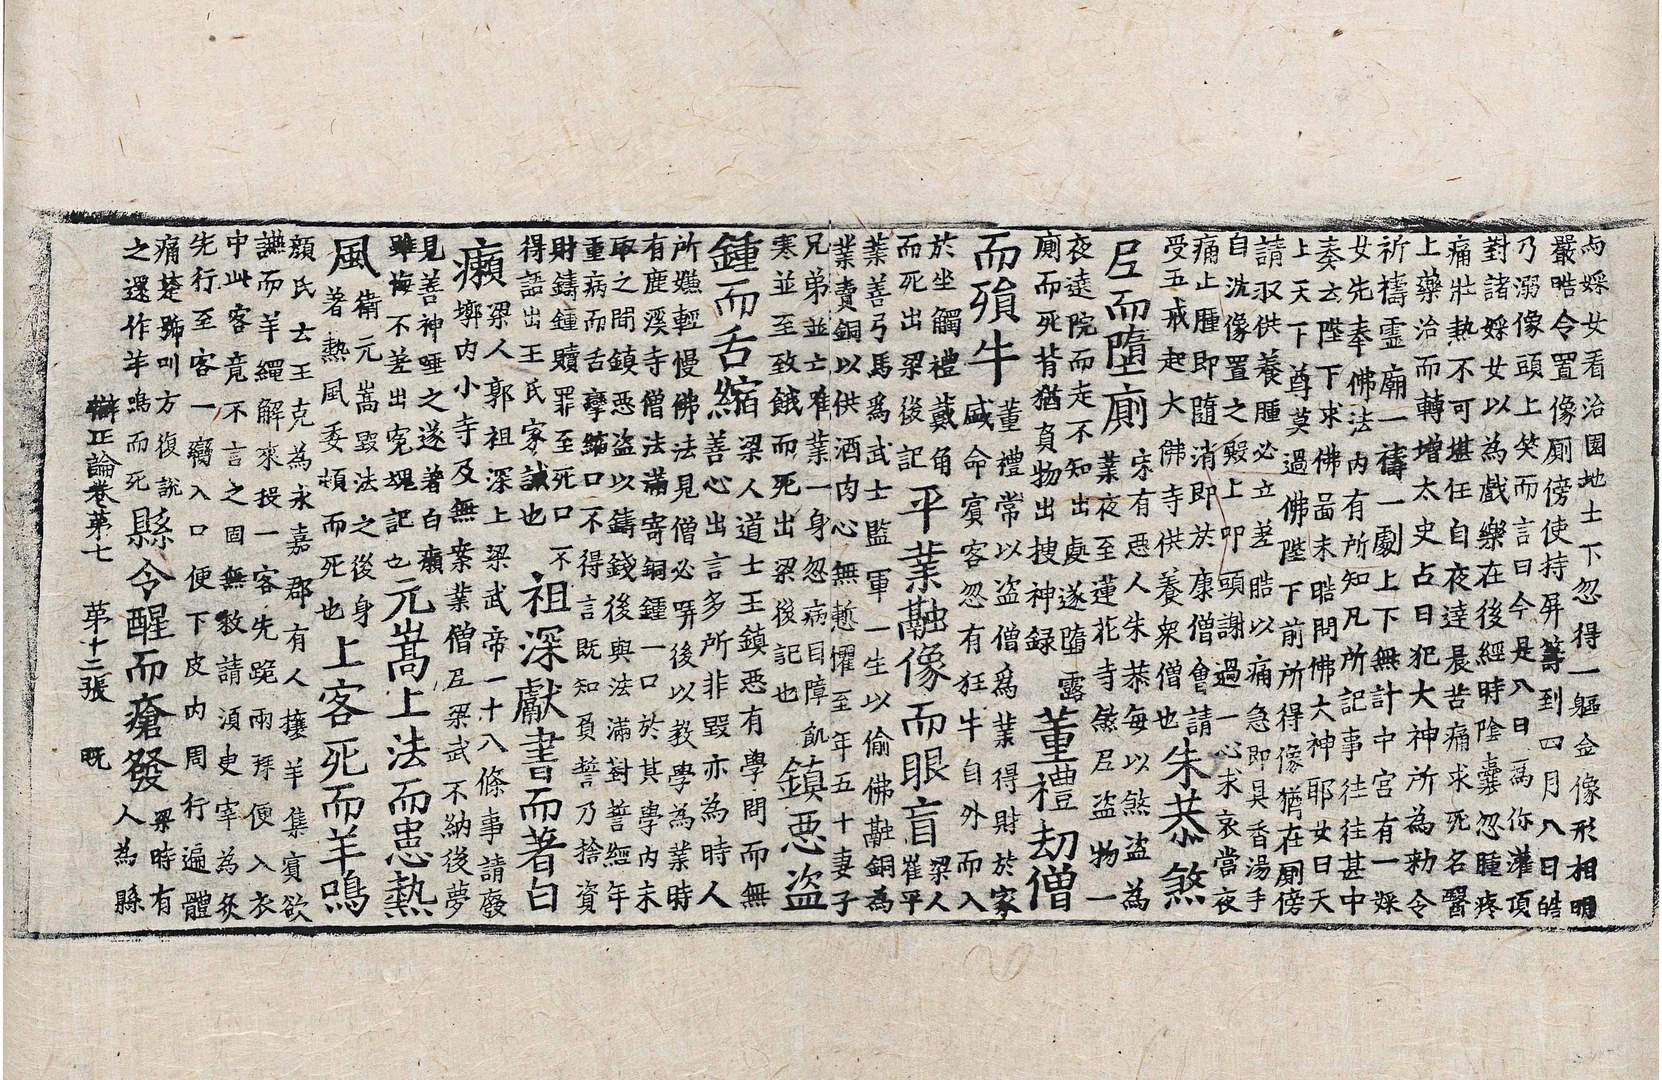 与婇女看治園地土下忽得一軀金像形相明
嚴晧令置像廁傍使持屏籌到四月八日皓
乃溺像頭上笑而言曰今是八日為你灌頂
對諸婇女以為戲樂在後經時陰囊忽腫疼
痛壯熱不可堪任自夜達晨苦痛求死名醫
上藥治而轉增太史占曰犯大神所為勑令
祈禱靈廟一禱一劇上下無計中宮有一婇
女先奉佛法內有所知凡所記事往往甚中
奏云陛下求佛啚未晧問佛大神耶女曰天
上天下尊莫過佛陛下前所得像猶在廁傍
請収供養腫必立差晧以痛急即具香湯手
自洗像置之殿上叩頭謝過一心求哀當夜
痛止腫即隨消即於康僧會請
受五戒起大佛寺供養衆僧也
朱恭煞
𡰱而墮廁
宋有惡人朱恭每以煞盜為
業夜至蓮花寺煞𡰱盜物一
夜遶院而走不知出處遂墮露
廁而死背猶負物出搜神録
董禮劫僧
而殞牛
董禮常以盜僧為業得財於家
盛命賓客忽有狂牛自外而入
於坐觸禮戴角
而死出梁後記
平業融像而眼盲
梁人
崔平
業善弓馬為武士監軍一生以偷佛融銅為
業賣銅以供酒肉心無慙懼至年五十妻子
兄弟並亡唯業一身忽病目障飢
寒並至致餓而死出梁後記也
鎮惡盜
鍾而舌縮
梁人道士王鎮惡有學問而無
善心出言多所非毀亦為時人
所嫌輕慢佛法見僧必㖃後以教學為業時
有鹿溪寺僧法滿寄銅鍾一口於其學內未
取之間鎮惡盜以鑄錢後與法滿對誓經年
重病而舌攣縮口不得言既知負誓乃捨資
財鑄鍾贖罪至死口不
得語出王氏家誡也
祖深獻書而著白
癩
梁人郭祖深上梁武帝一十八條事請廢
墎內小寺及無案業僧𡰱梁武不納後夢
見善神唾之遂著白癩
雖悔不差出寃䰟記也
元嵩上法而患熱
風
衛元嵩毀法之後身
著熱風委頓而死也
上客死而羊鳴
顏氏云王克為永嘉郡有人攘羊集賓欲
讌而羊繩解來投一客先跪兩拜便入衣
中此客竟不言之固無救請湏史宰為炙
先行至客一臠入口便下皮內周行遍體
痛楚號叫方復說
之還作羊鳴而死
縣令醒而瘡發
梁時有
人為縣
辯正論卷第七　第十二張　既